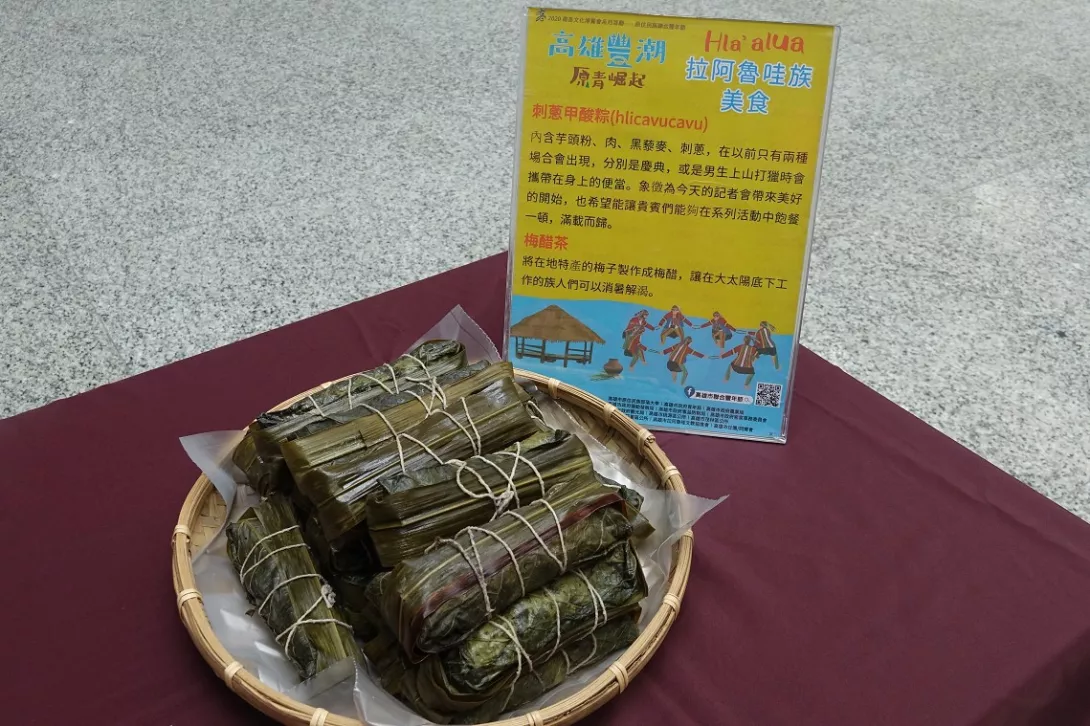 高雄豐潮
原青崛起
Hla'alua
拉阿魯哇族
美食
刺蔥甲酸粽(hlicavucavu)
內含芋頭粉、肉、黑藜麥、刺蔥，在以前只有兩種
場合會出現，分別是慶典，或是男生上山打獵時會
攜帶在身上的便當。象徵為今天的記者會帶來美好
的開始，也希望能讓貴賓們能夠在系列活動中飽餐
一頓，滿載而歸。
梅醋茶
將在地特產的梅子製作成梅醋，讓在大太陽底下工
作的族人們可以消暑解渴。
高雄市聯合豐年節